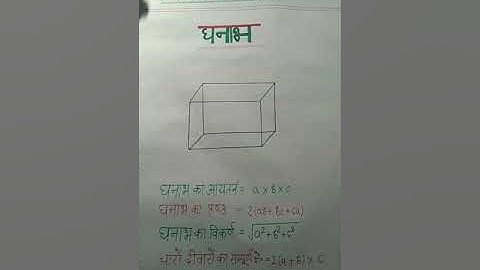 घनाभ
घनाभ का आयतन = a x b x c
घनाभ का पृष्ठ = 2(ab + bc + ca)
घनाभ का विकर्ण = √a²+b²+c²
चारों दीवारों का सम्पूर्ण क्षे० = 2(a+b) x c